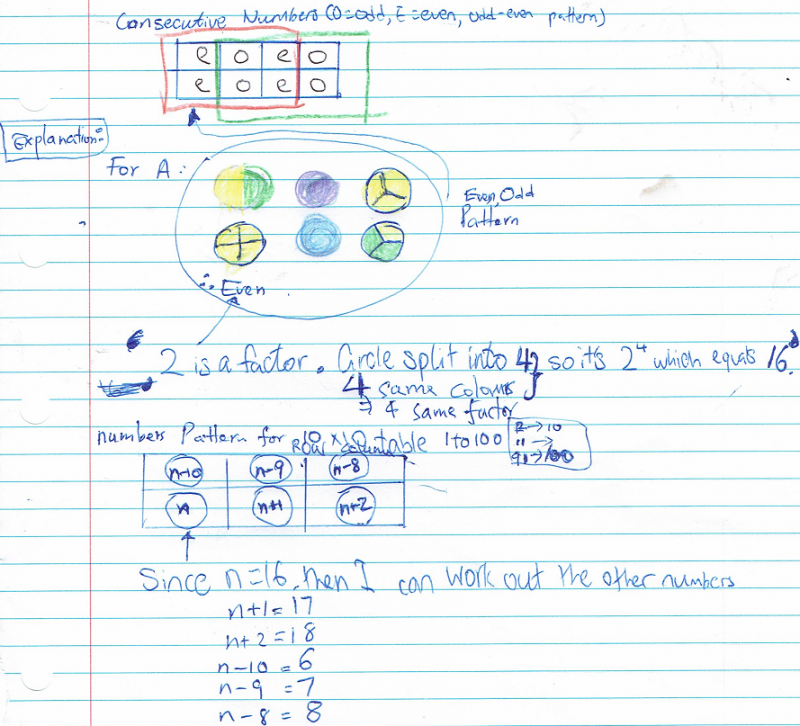 Consecutive Numbers (O=odd, E=even, odd-even pattern)
e o e o
e o e o
Explanation:
For A:
Even, Odd
Pattern
∴ Even
2 is a factor. Circle split into 4 so its 2⁴ which equals 16.
4 same colours
⇒ 4 same factor
numbers Pattern for 10 × 10 table 1 to 100
1→10
11→
91→100
n-10 n-9 n-8
n n+1 n+2
Since n=16, then I can work out the other numbers
n+1=17
n+2=18
n-10=6
n-9=7
n-8=8